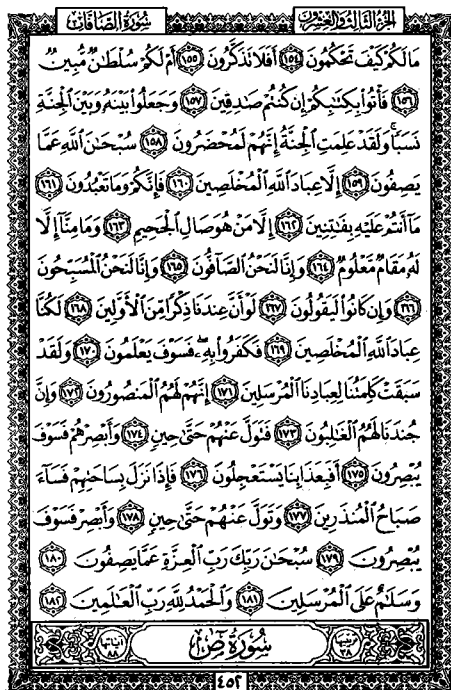 الجزء الثالث والعشرون سورة الصافات
مَا لَكُمْ كَيْفَ تَحْكُمُونَ ١٥٤ أَفَلَا تَذَكَّرُونَ ١٥٥ أَمْ لَكُمْ سُلْطَٰنٌ مُّبِينٌ
١٥٦ فَأْتُوا۟ بِكِتَٰبِكُمْ إِن كُنتُمْ صَٰدِقِينَ ١٥٧ وَجَعَلُوا۟ بَيْنَهُۥ وَبَيْنَ ٱلْجِنَّةِ
نَسَبًا ۚ وَلَقَدْ عَلِمَتِ ٱلْجِنَّةُ إِنَّهُمْ لَمُحْضَرُونَ ١٥٨ سُبْحَٰنَ ٱللَّهِ عَمَّا
يَصِفُونَ ١٥٩ إِلَّا عِبَادَ ٱللَّهِ ٱلْمُخْلَصِينَ ١٦٠ فَإِنَّكُمْ وَمَا تَعْبُدُونَ ١٦١
مَآ أَنتُمْ عَلَيْهِ بِفَٰتِنِينَ ١٦٢ إِلَّا مَنْ هُوَ صَالِ ٱلْجَحِيمِ ١٦٣ وَمَا مِنَّآ إِلَّا
لَهُۥ مَقَامٌ مَّعْلُومٌ ١٦٤ وَإِنَّا لَنَحْنُ ٱلصَّآفُّونَ ١٦٥ وَإِنَّا لَنَحْنُ ٱلْمُسَبِّحُونَ
١٦٦ وَإِن كَانُوا۟ لَيَقُولُونَ ١٦٧ لَوْ أَنَّ عِندَنَا ذِكْرًا مِّنَ ٱلْأَوَّلِينَ ١٦٨ لَكُنَّا
عِبَادَ ٱللَّهِ ٱلْمُخْلَصِينَ ١٦٩ فَكَفَرُوا۟ بِهِۦ ۖ فَسَوْفَ يَعْلَمُونَ ١٧٠ وَلَقَدْ
سَبَقَتْ كَلِمَتُنَا لِعِبَادِنَا ٱلْمُرْسَلِينَ ١٧١ إِنَّهُمْ لَهُمُ ٱلْمَنصُورُونَ ١٧٢ وَإِنَّ
جُندَنَا لَهُمُ ٱلْغَٰلِبُونَ ١٧٣ فَتَوَلَّ عَنْهُمْ حَتَّىٰ حِينٍ ١٧٤ وَأَبْصِرْهُمْ فَسَوْفَ
يُبْصِرُونَ ١٧٥ أَفَبِعَذَابِنَا يَسْتَعْجِلُونَ ١٧٦ فَإِذَا نَزَلَ بِسَاحَتِهِمْ فَسَآءَ
صَبَاحُ ٱلْمُنذَرِينَ ١٧٧ وَتَوَلَّ عَنْهُمْ حَتَّىٰ حِينٍ ١٧٨ وَأَبْصِرْ فَسَوْفَ
يُبْصِرُونَ ١٧٩ سُبْحَٰنَ رَبِّكَ رَبِّ ٱلْعِزَّةِ عَمَّا يَصِفُونَ ١٨٠
وَسَلَٰمٌ عَلَى ٱلْمُرْسَلِينَ ١٨١ وَٱلْحَمْدُ لِلَّهِ رَبِّ ٱلْعَٰلَمِينَ ١٨٢
ترتيبها ٣٨ سُورَةُ صٓ آياتها ٨٨
٤٥٢